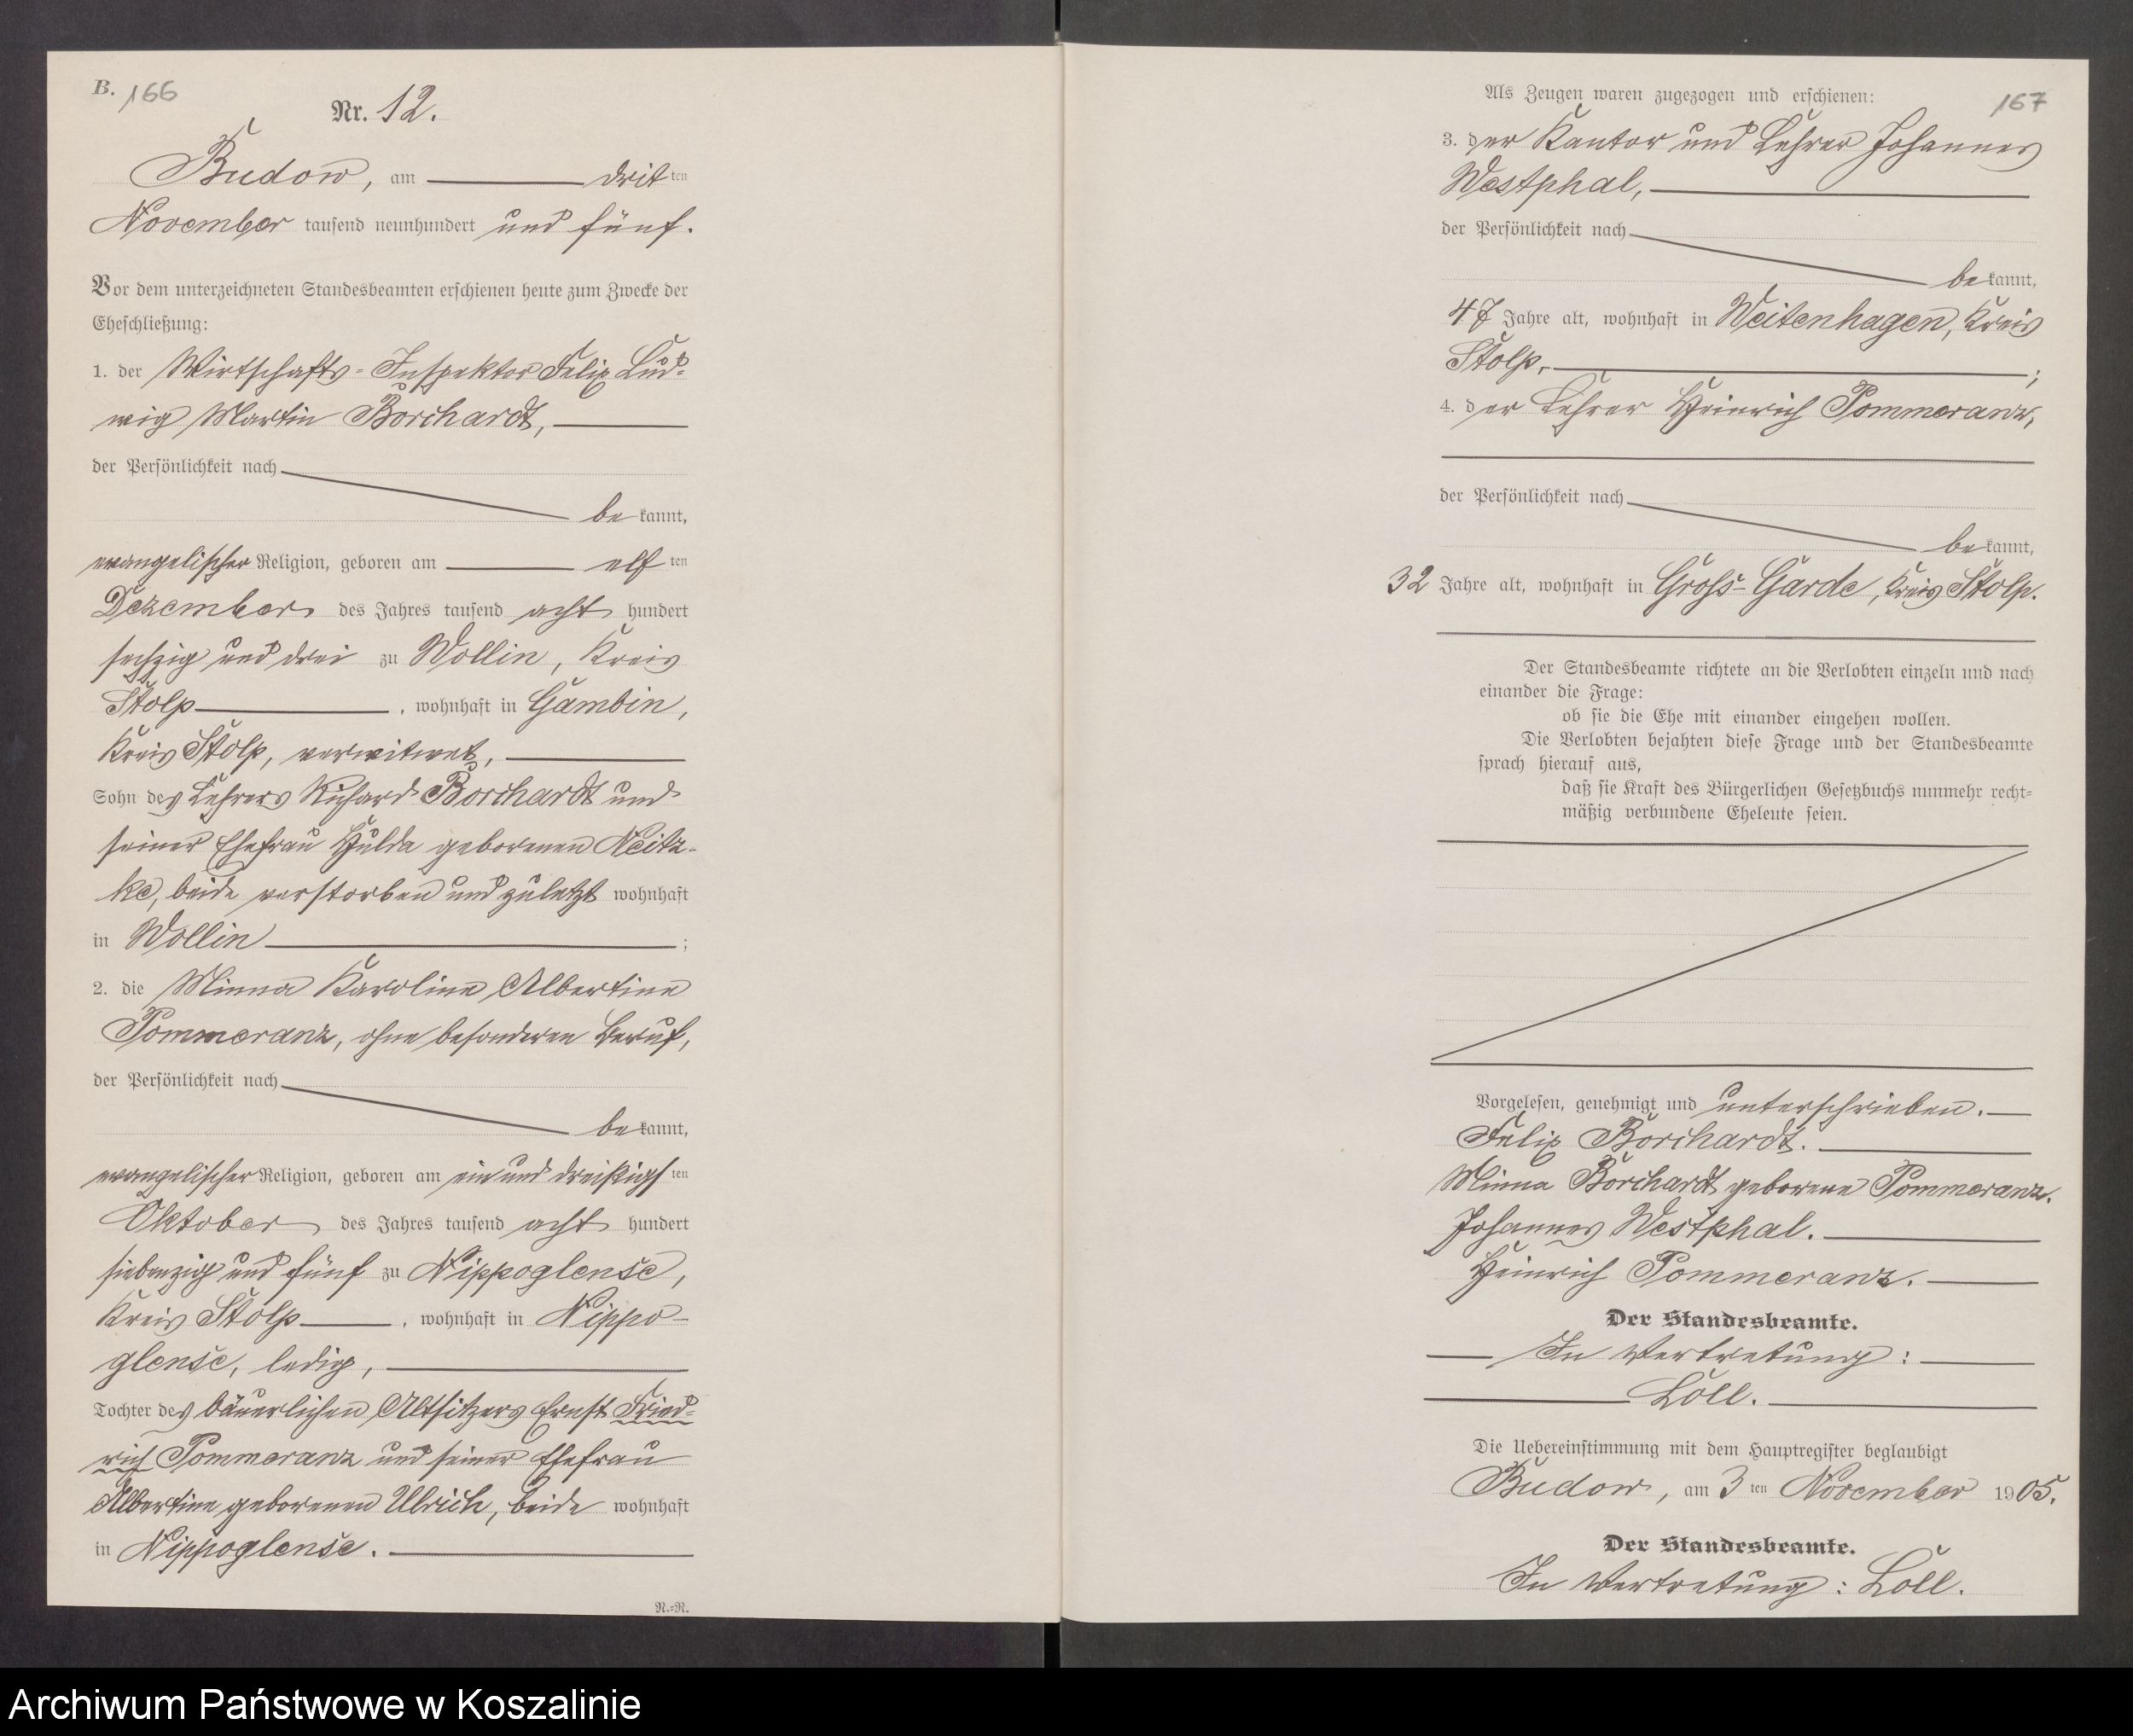 B. 166
Nr. 12.
Budow, am dritten
November tausend neunhundert und fünf.
Vor dem unterzeichneten Standesbeamten erschienen heute zum Zwecke der
Eheschließung:
1. der Wirtschafts-Inspektor Felix Lud-
wig Martin Borchardt,
der Persönlichkeit nach
bekannt,
evangelischer Religion, geboren am elften
Dezember des Jahres tausend acht hundert
sechzig und drei zu Wollin, Kreis
Stolp, wohnhaft in Gambin,
Kreis Stolp, verwitwet,
Sohn des Lehrers Richard Borchardt und
seiner Ehefrau Hulda geborenen Neitz-
ke, beide verstorben und zuletzt wohnhaft
in Wollin;
2. die Minna Karoline Albertine
Pommeranz, ohne besonderen Beruf,
der Persönlichkeit nach
bekannt,
evangelischer Religion, geboren am ein und dreißigsten
Oktober des Jahres tausend acht hundert
siebenzig und fünf zu Nippoglense,
Kreis Stolp, wohnhaft in Nippo-
glense, ledig,
Tochter des bäuerlichen Altsitzers Ernst Fried-
rich Pommeranz und seiner Ehefrau
Albertine geborenen Ulrich, beide wohnhaft
in Nippoglense.
N.-R.
Als Zeugen waren zugezogen und erschienen:
167
3. der Kantor und Lehrer Johannes
Westphal,
der Persönlichkeit nach
bekannt,
47 Jahre alt, wohnhaft in Weitenhagen, Kreis
Stolp,;
4. der Lehrer Heinrich Pommeranz,
der Persönlichkeit nach
bekannt,
32 Jahre alt, wohnhaft in Groß-Garde, Kreis Stolp.
Der Standesbeamte richtete an die Verlobten einzeln und nach
einander die Frage:
ob sie die Ehe mit einander eingehen wollen.
Die Verlobten bejahten diese Frage und der Standesbeamte
sprach hierauf aus,
daß sie Kraft des Bürgerlichen Gesetzbuchs nunmehr recht-
mäßig verbundene Eheleute seien.
Vorgelesen, genehmigt und unterschrieben.
Felix Borchardt.
Minna Borchardt geborene Pommeranz.
Johannes Westphal.
Heinrich Pommeranz.
Der Standesbeamte.
In Vertretung:
Löll.
Die Uebereinstimmung mit dem Hauptregister beglaubigt
Budow, am 3ten November 1905.
Der Standesbeamte.
In Vertretung: Löll.
Archiwum Państwowe w Koszalinie